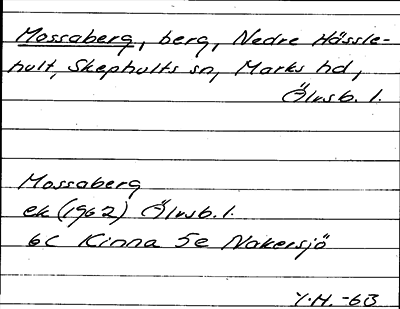 Mossaberg, berg, Nedre Hässle-
hult, Skephults sn, Marks hd,
Älvsb. l.
Mossaberg
ek (1962) Älvsb. l.
6C Kinna 5e Nakersjö
Y.H. -63